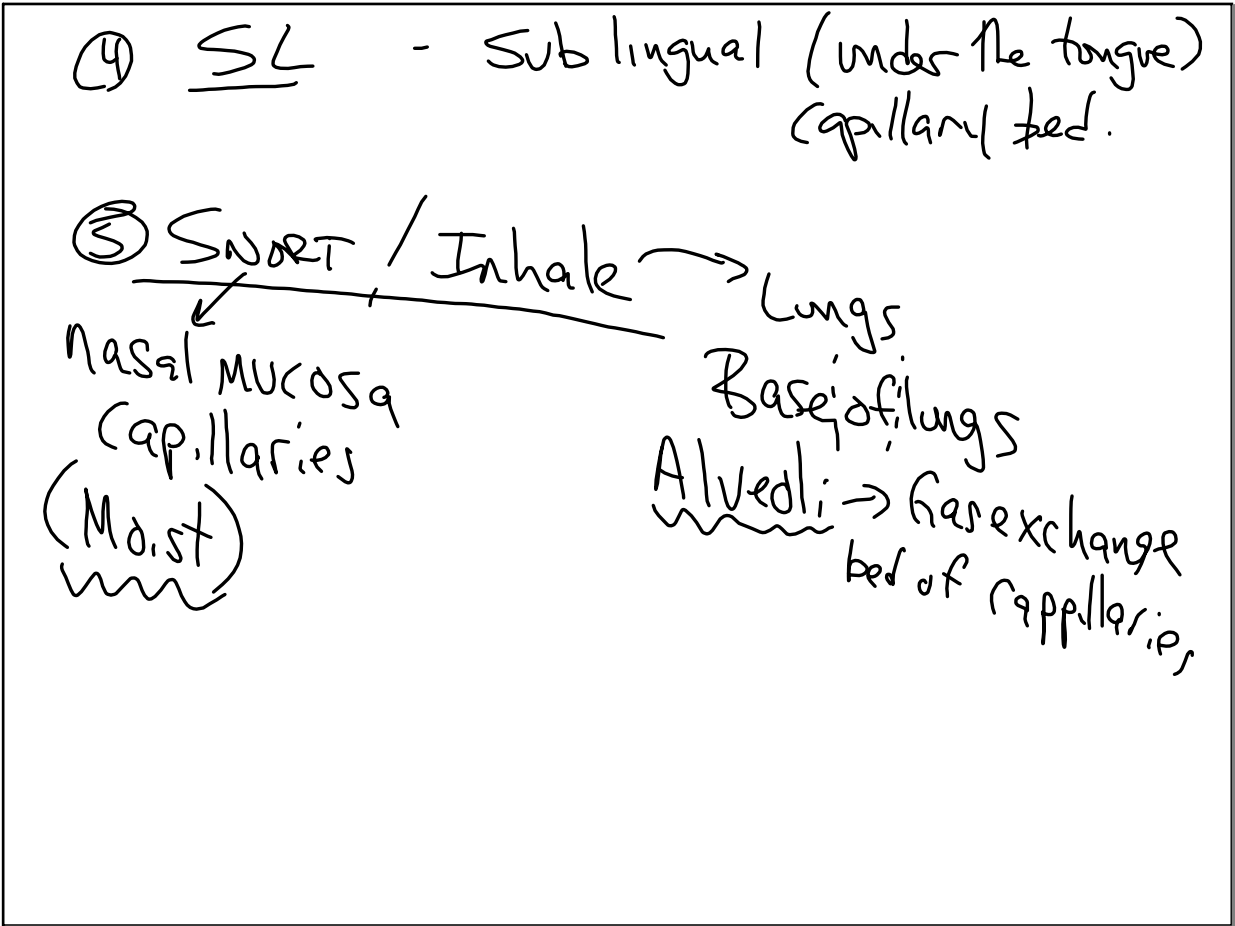 ④ SL - Sublingual (under the tongue)
Capillary bed.
⑤ SNORT / Inhale → Lungs
nasal mucosa
capillaries
(Moist)
Base of lungs
Alveoli → Gas exchange
bed of cappillaries